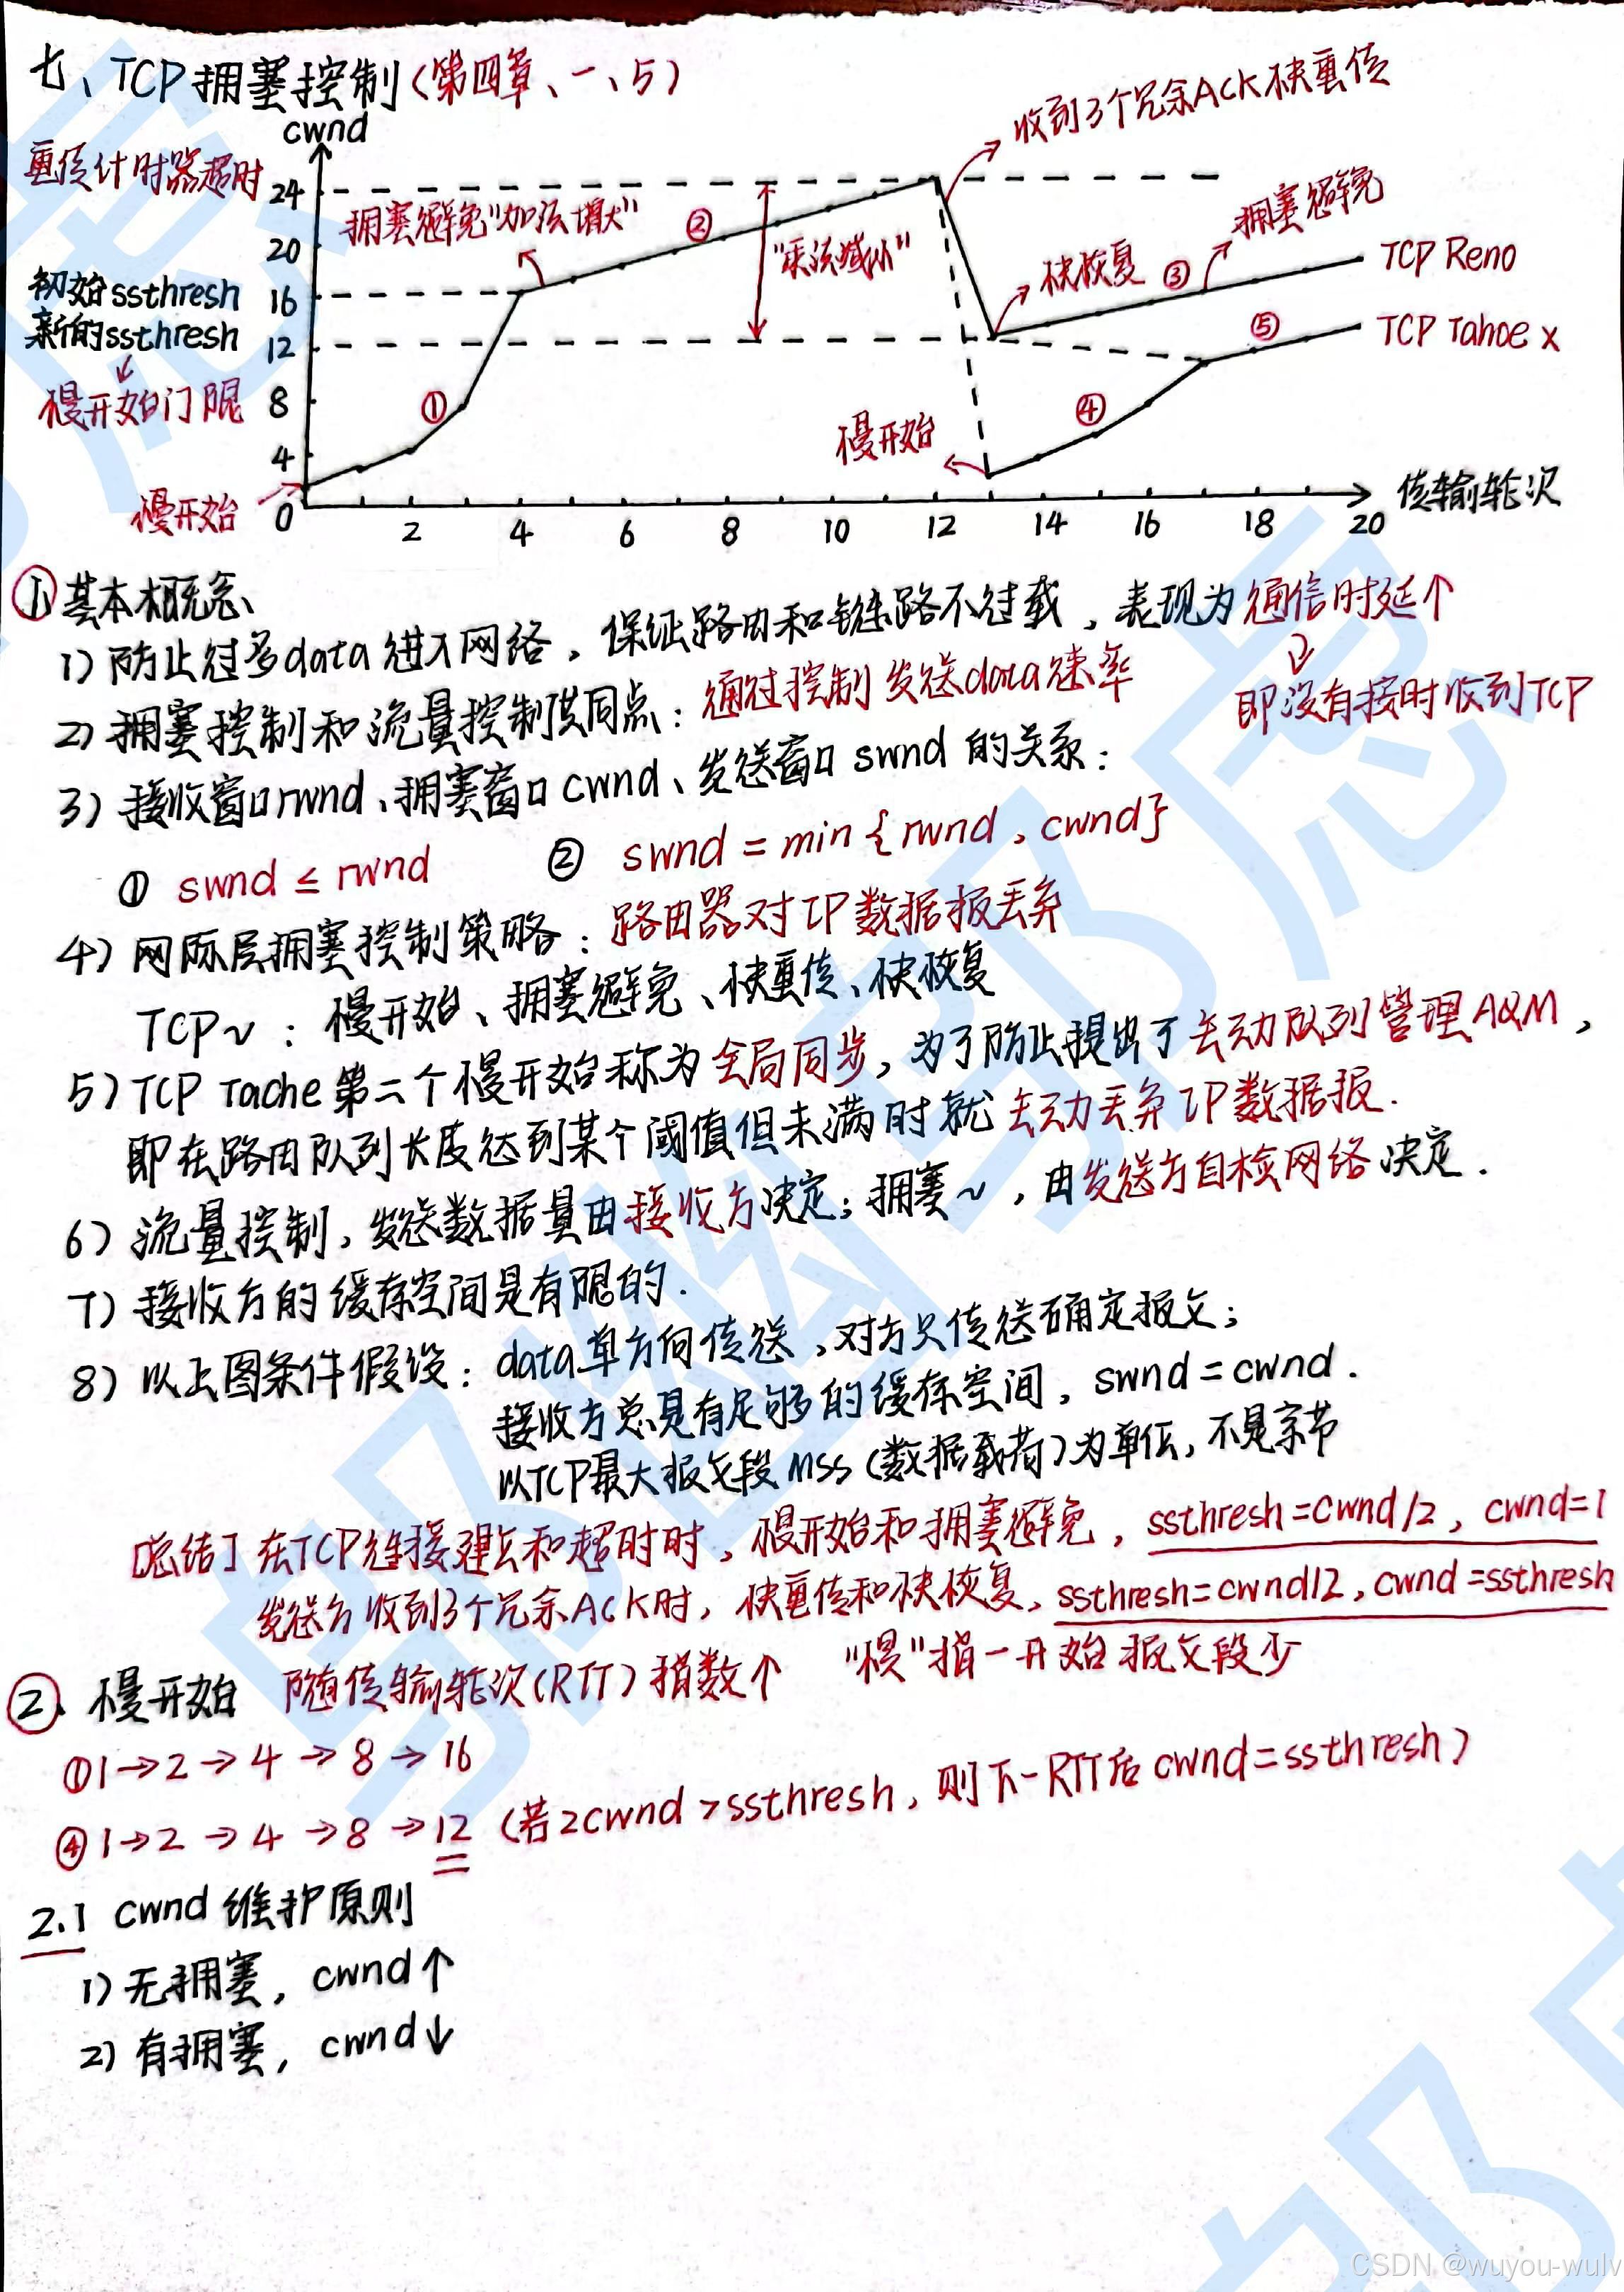 七、TCP拥塞控制(第四章、一、5)
cwnd
收到3个冗余ACK快重传
重传计时器超时
24
拥塞避免"加法增大"
②
"乘法减小"
拥塞避免
20
快恢复
③
TCP Reno
初始ssthresh
16
新的ssthresh
12
⑤
TCP Tahoe x
慢开始门限
8
①
④
4
慢开始
慢开始
0
2
4
6
8
10
12
14
16
18
20
传输轮次
① 基本概念、
1) 防止过多data进入网络，保证路由和链路不过载，表现为通信时延↑
即没有按时收到TCP
2) 拥塞控制和流量控制共同点：通过控制发送data速率
3) 接收窗口rwnd、拥塞窗口cwnd、发送窗口swnd的关系：
① swnd ≤ rwnd ② swnd = min{rwnd, cwnd}
4) 网际层拥塞控制策略：路由器对IP数据报丢弃
TCP~：慢开始、拥塞避免、快重传、快恢复
5) TCP Tache第二个慢开始称为全局同步，为了防止提出了主动队列管理AQM，
即在路由队列长度达到某个阈值但未满时就主动丢弃IP数据报.
6) 流量控制，发送数据量由接收方决定；拥塞~，由发送方自检网络决定.
7) 接收方的缓存空间是有限的.
8) 以上图条件假设：data单方向传送，对方只传送确定报文；
接收方总是有足够的缓存空间，swnd=cwnd.
以TCP最大报文段MSS(数据载荷)为单位，不是字节
[总结] 在TCP连接建立和超时时，慢开始和拥塞避免，ssthresh=cwnd/2，cwnd=1
发送方收到3个冗余ACK时，快重传和快恢复，ssthresh=cwnd/2，cwnd=ssthresh
②、慢开始 随传输轮次(RTT)指数↑ "慢"指一开始报文段少
①1→2→4→8→16
④1→2→4→8→12 (若2cwnd>ssthresh，则下一RTT后cwnd=ssthresh)
2.1 cwnd维护原则
1) 无拥塞，cwnd↑
2) 有拥塞，cwnd↓
CSDN @wuyou-wulv